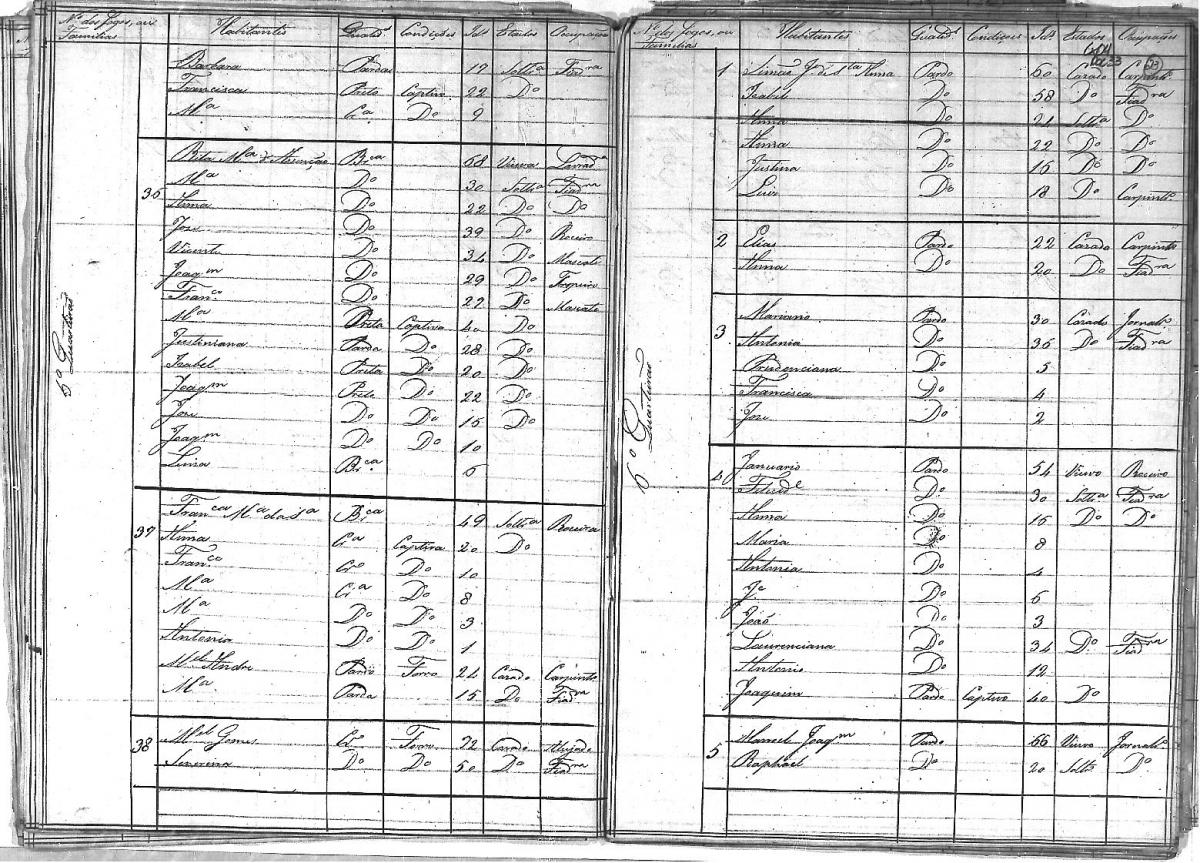 Nº dos Fogos, ou Familias Habitantes Qualids Condições Ids Estados Occupação
Barbara Pardas 17 Soltra Fiadra
Francisca Preta Captiva 22 Do
Ma Cra Do 9
5º Quartirão
36
Rita Ma d'Assunção Brca 68 Viuva Lavradra
Ma Do 30 Soltra Fiadra
Anna Do 22 Do Do
Jose Do 39 Do Roceiro
Vicente Do 34 Do Mascate
Joaqm Do 29 Do
Franco Do 27 Do Mascate
Ma Preta Captiva 40 Do
Justiniana Parda Do 28 Do
Isabel Preta Do 20 Do
Joaqm Preto Do 22 Do
Jose Do Do 15 Do
Joaqm Do Do 10
Lima Brca 6
37
Franca Ma da Sa Brca 49 Solta Roceira
Anna Cra Captiva 20 Do
Franco Cro Do 10
Ma Cra Do 8
Ma Do Do 3
Antonia Do Do 1
Mel Andre Pardo Forro 24 Cazado Carpinto
Ma Parda 15 Do Fiadra
38
Mel Gomes Cro Forro 72 Cazado Alejado
Severina Do Do 50 Do Fiadra
Nº dos Fogos, ou Familias Habitantes Qualids Condições Ids Estados Occupações
6º Quartirão
1
Simão Je de Sta Anna Pardo 60 Cazado Carpinto
Isabel Do 58 Do Fiadra
Anna Do 21 Solta Do
Anna Do 22 Do Do
Justina Do 15 Do Do
Luis Do 18 Do Carpinto
2
Elias Pardo 22 Cazado Carpinto
Anna Do 20 Do Fiadra
3
Mariano Pardo 30 Cazado Jornalo
Antonia Do 36 Do Fiadra
Prudenciana Do 5
Francisca Do 4
Jose Do 2
4
Januario Pardo 54 Viuvo Roceiro
Felicide Do 30 Solta Fiadra
Anna Do 16 Do Do
Maria Do 8
Antonia Do 4
Je Do 6
João Do 3
Laurenciana Do 34 Do Fiadra
Antonio Do 12
Joaquim Pardo Captivo 40 Do
5
Manoel Joaqm Pardo 66 Viuvo Jornalo
Raphael Do 20 Solto Do